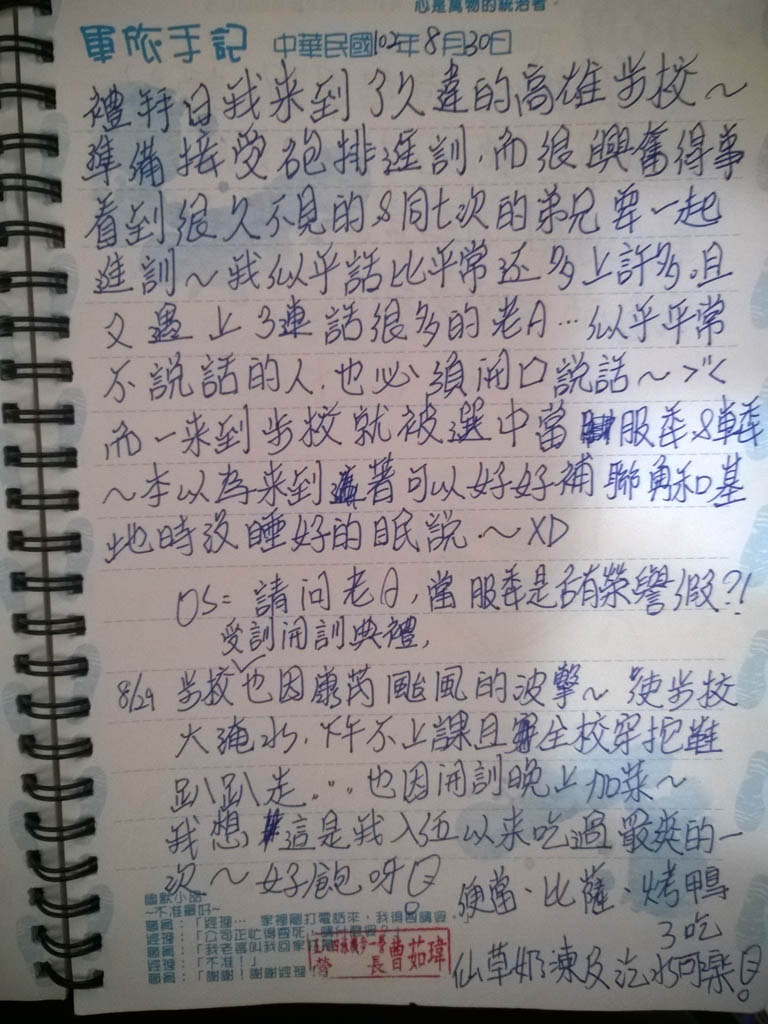 心是萬物的統治者。
軍旅手記 中華民國102年8月30日
禮拜日我来到了久違的高雄步校~
準備接受砲排進訓,而很興奮得事
看到很久不見的8同七次的弟兄要一起
進訓~我似乎話比平常还多上許多。且
又遇上3連話很多的老A…似乎平常
不說話的人,也必須開口說話~>"<
而一来到步校就被選中當服萃8
~本以為来到著可以好好補聯勇和基
地時沒睡好的眠說.~XD
OS=請问老A,當服萃是否有榮譽假?!
受訓開訓典禮,
8/29 步校也因康芮颱風的波擊~使步校
大淹水,下午不上課且全校穿拖鞋
趴趴走...也因開訓晚上加菜~
我想這是我入伍以来吃過最爽的一
次~好飽呀
便當、比薩、烤鴨
3吃
仙草奶凍及汽水可樂
幽默小品
~不准最好~
職員:「經理… 家裡剛打電話來,我得
經理:「公司正忙得要死
職員:「我老
經理:「不准!」
職員:「謝謝!謝謝經理
營長曾茹瑋